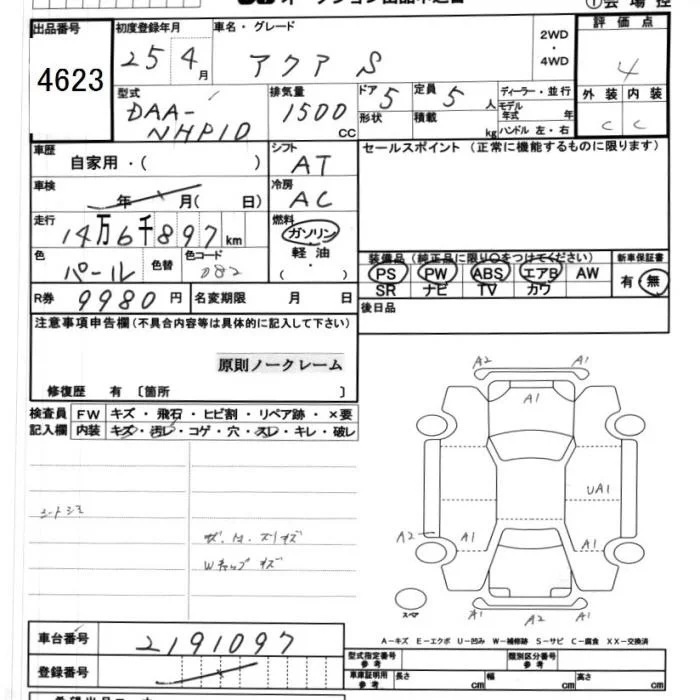 出品番号
4623
初度登録年月
25 4月
車名・グレード
アクア S
2WD
・
4WD
評価点
4
型式
DAA-
NHP10
排気量
1500
CC
ドア
5
形状
定員
5人
積載
kg
ディーラー・並行
モデル
年式 年
ハンドル 左・右
外装 内装
C C
車歴
自家用・( )
シフト
AT
セールスポイント(正常に機能するものに限ります)
車検
年 月( 日)
冷房
AC
走行
14万6千897km
燃料
ガソリン
軽油
( ・ )
色
パール
色替
色コード
082
装備品(純正品に限り○をつけてください)
PS PW ABS エアB AW
SR ナビ TV カワ
新車保証書
有・無
R券
9980円
名変期限 月 日
後日品
注意事項申告欄(不具合内容等は具体的に記入して下さい)
原則ノークレーム
修復歴 有〔箇所 〕
検査員
記入欄
FW キズ・飛石・ヒビ割・リペア跡・×要
内装 キズ・汚レ・コゲ・穴・スレ・キレ・破レ
シートシミ
Wキャップキズ
A2 A1
A1
UA1
A2 A1 A1
A1 A2 A1
スペア
A-キズ E-エクボ U-凹み W-補修跡 S-サビ C-腐食 XX-交換済
車台番号
2191097
登録番号
型式指定番号
参考
類別区分番号
参考
車庫証明用
参考
長さ cm 幅 cm 高さ cm